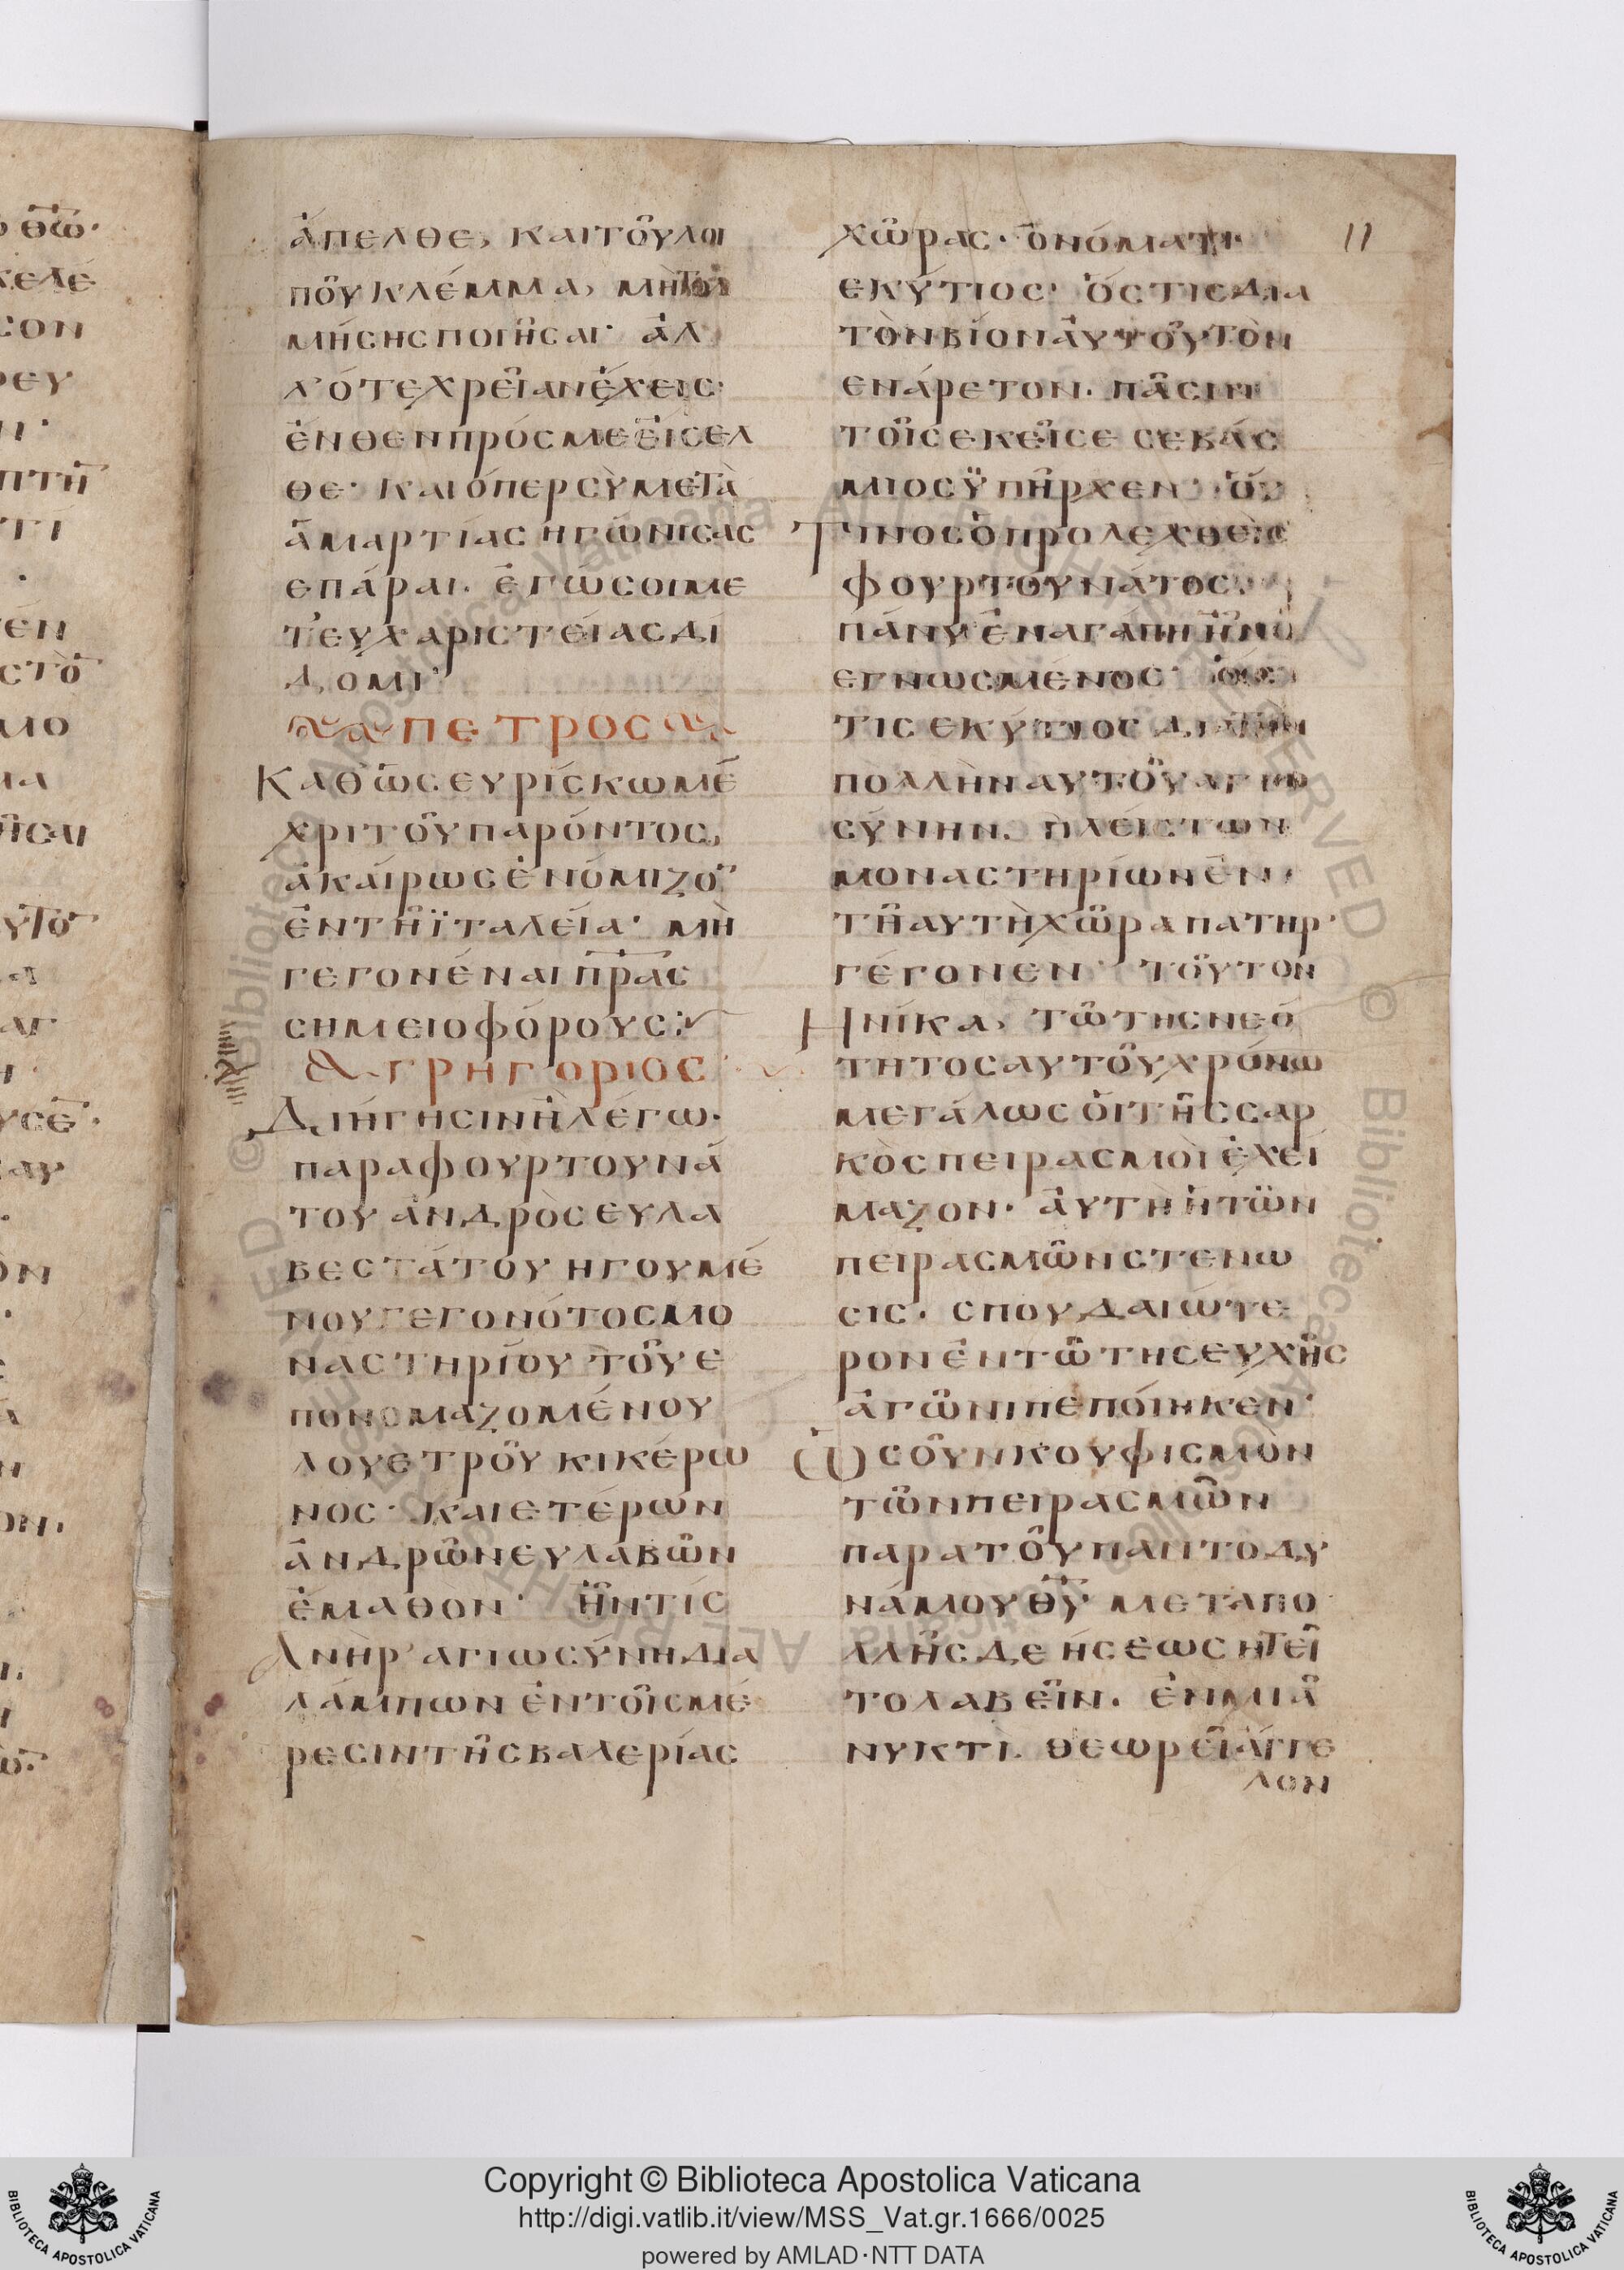 11
ἄπελθε, καιτοῦλοι
ποῦ κλέμμα, μὴτολ
μήσηςποιῆσαι· ἀλ
λ' ότεχρείανέχεις·
ένθενπρόςμεεἰσελ
θε· καιόπερσὺμετὰ
ἁμαρτίαςηγώνισας
επάραι. ἐγώσοιμε
τ'ευχαριστείαςδί
δομι·
ΠΕΤΡΟΣ
Καθὼςευρίσκωμε̄
χριτοῦπαρόντος,
ἀκαίρωςἐνόμιζο̄
ἐντῆϊταλεία· μὴ
γεγονέναιπρ̄ας
σημειοφόρους:
ΓΡΗΓΟΡΙΟΣ
Διήγησινἣλέγω·
παραφουρτουνά
του ἀνδρὸςευλα
βεστάτου ηγουμέ
νουγεγονότοςμο
ναστηρίου τοῦε
πονομαζομένου
λουετροῦ κικέρω
νος· καιετέρων
ἀνδρῶνευλαβῶν
ἐμαθὸν· ἥντίς
Ανὴρ' αγιωσύνηδια
λάμπων ἐντοῖςμέ
ρεσιντῆςβαλερίας
χῶρας· ὀνόματι·
εκύτιος· ὅστιςδια
τὸνβίοναὐτοῦτὸν
ενάρετον. πᾶσιν
τοῖςεκεῖσε σεβάς
μιοςϋπῆρχεν· οὗ
Τινοςὁπρολεχθεὶς
φουρτουνάτος.
πάνυ ἐναγάπη
εγνωσμένος· ὅς
τις εκύτιος διατὴν
πολλὴναυτοῦαγιω
σύνην. πλείστων
μοναστηρίωνἐν
τῆαυτὴχῶραπατηρ·
γέγονεν· τοῦτον
Ηνίκα, τῶτηςνεό
τητοςαυτοῦχρόνω
μεγάλως ὁιτῆςσαρ
κὸςπειρασμοὶ ἐχεί
μαζον· ἀυτὴ ἡτῶν
πειρασμῶνστενω
σις. σπουδαιώτε
ρονἐντῶτηςευχῆς
ἀγῶνιπεποίηκεν·
Ὡςοῦνκουφισμὸν
τῶνπειρασμῶν
παρατοῦπαντοδυ
νάμουθ̄ῦ μεταπο
λλῆςδεήσεωςητεῖ
τολαβεῖν. ἐνμιᾶ
νυκτὶ. θεωρεῖἀγγε
λον
θ̄ω·
κελέ
σον
ρευ
Copyright © Biblioteca Apostolica Vaticana
http://digi.vatlib.it/view/MSS_Vat.gr.1666/0025
powered by AMLAD·NTT DATA
BIBLIOTECA APOSTOLICA VATICANA
BIBLIOTECA APOSTOLICA VATICANA